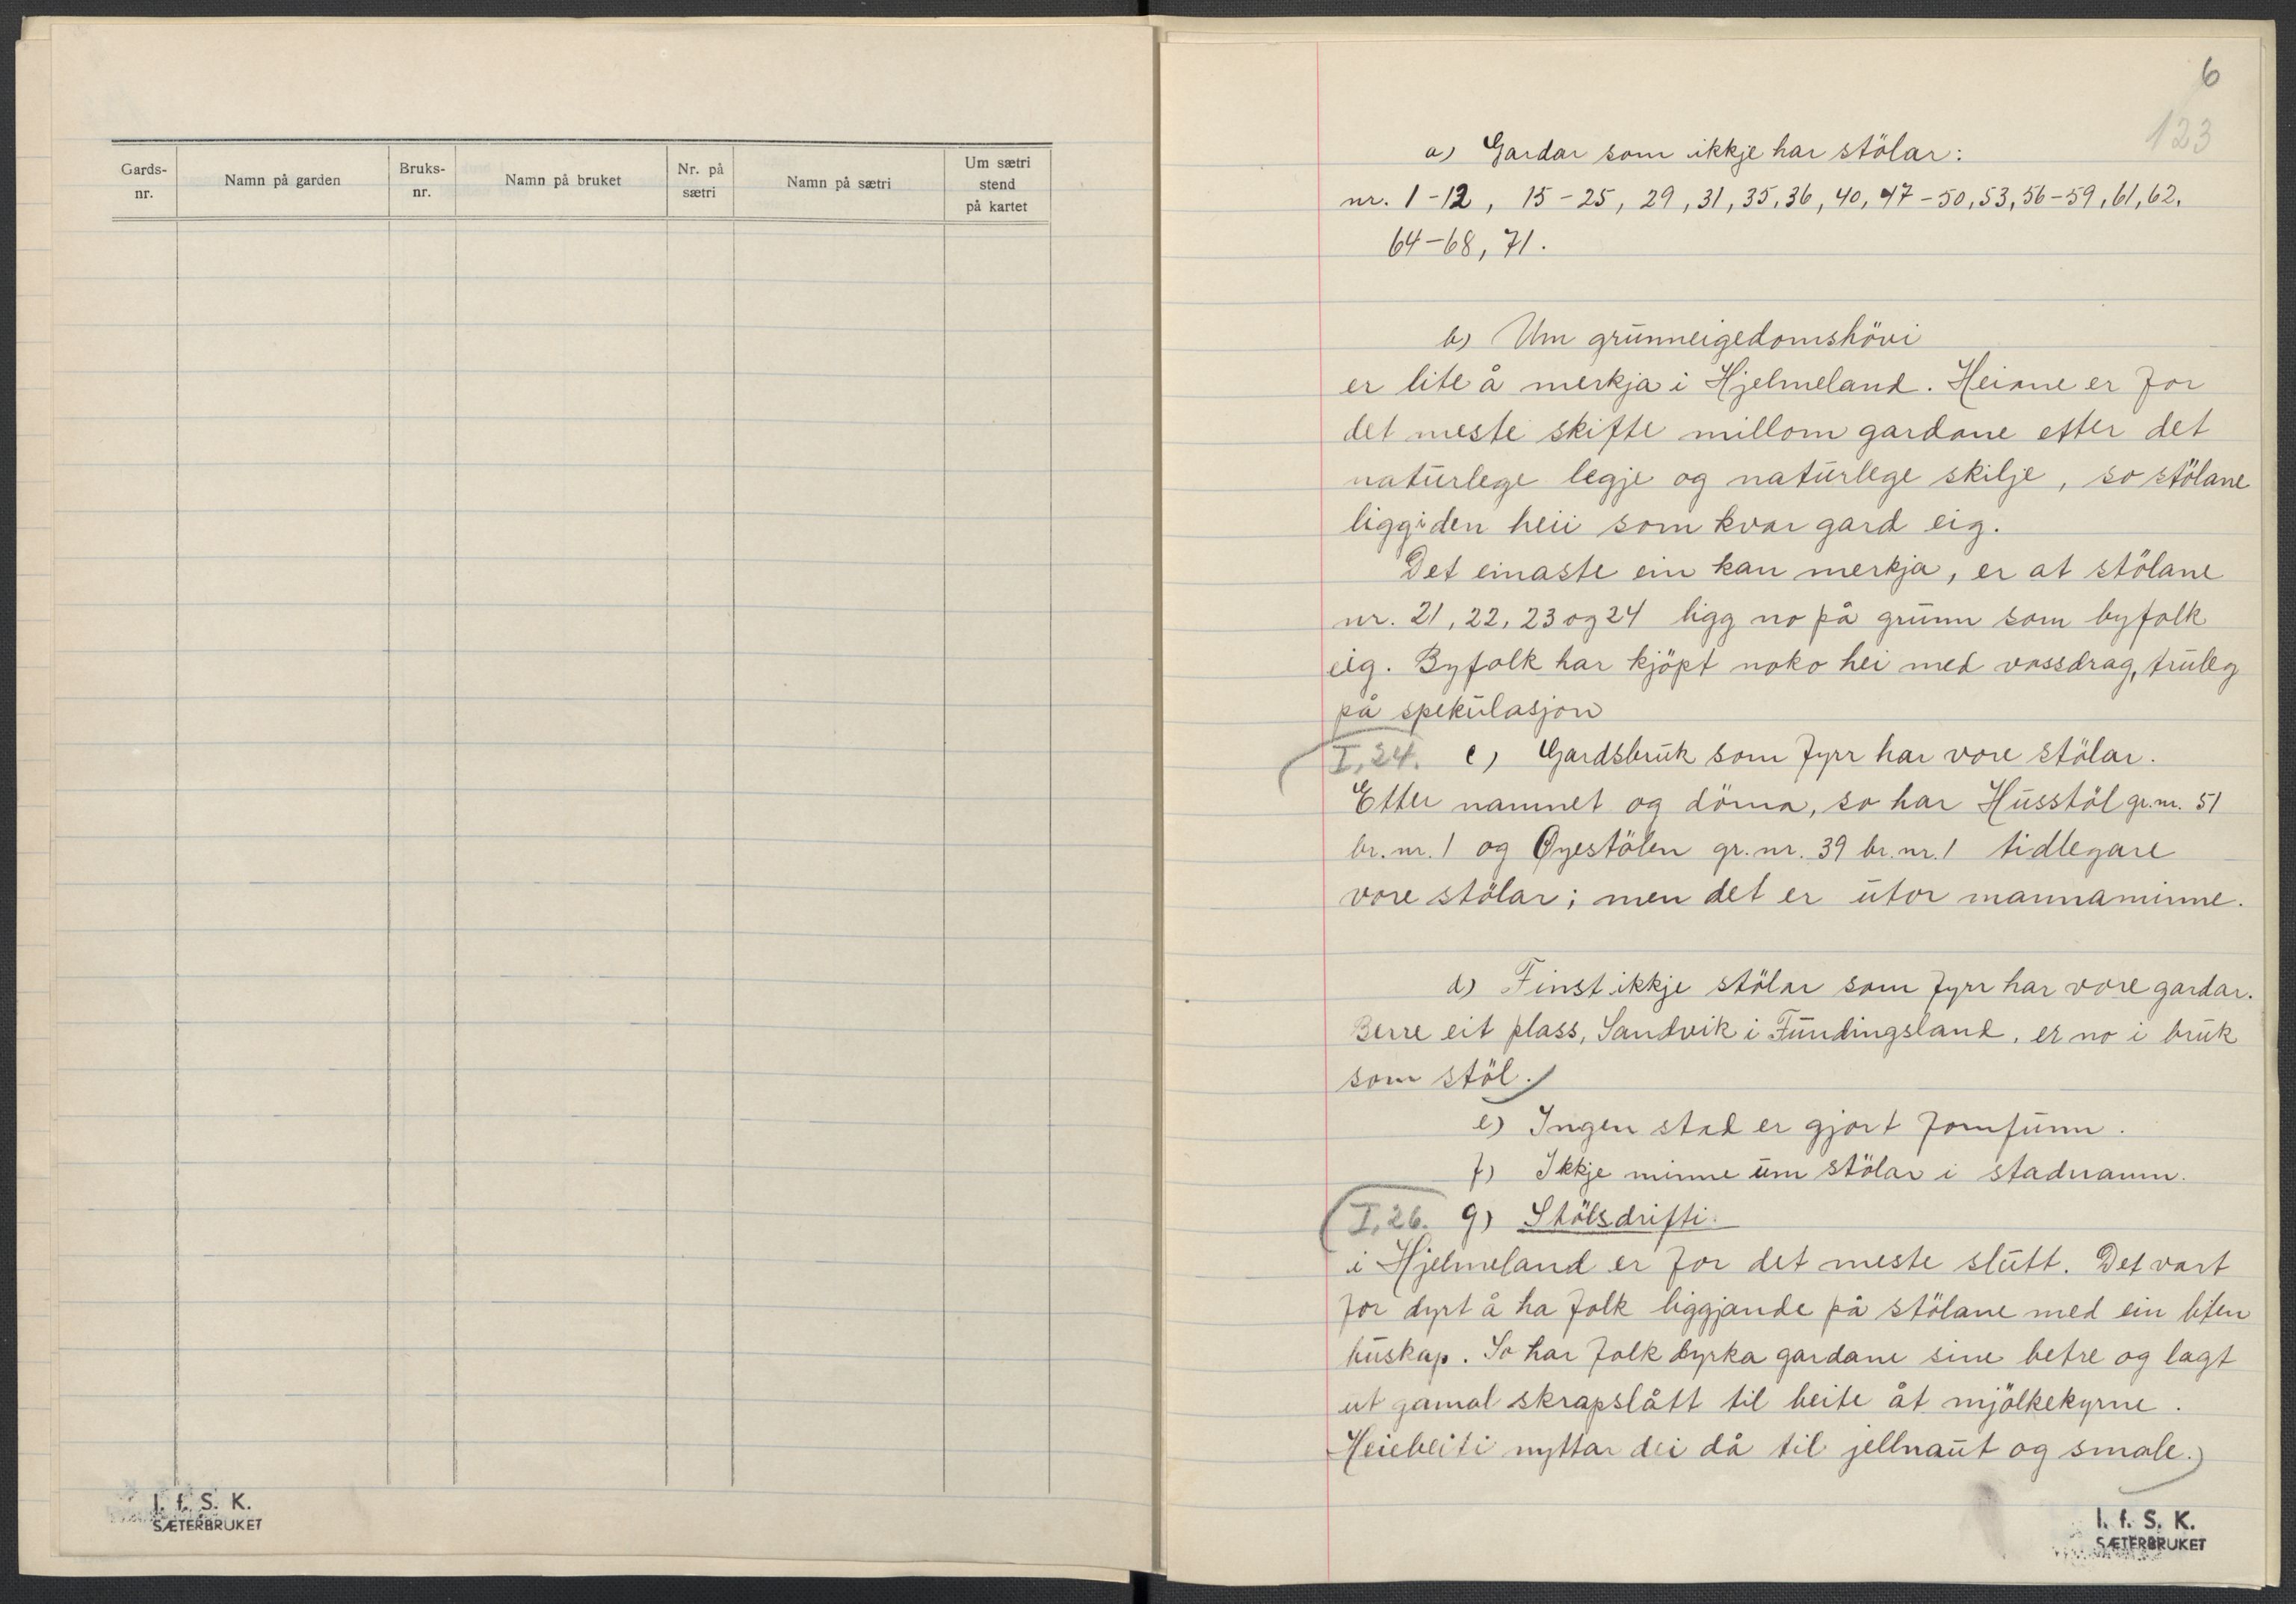 Gards-
nr.
Namn på garden
Bruks-
nr.
Namn på bruket
Nr. på
sætri
Namn på sætri
Um sætri
stend
på kartet
I. f. S. K.
SÆTERBRUKET
6
123
a) Gardar som ikkje har stölar:
nr. 1-12, 15-25, 29, 31, 35, 36, 40, 47-50, 53, 56-59, 61, 62,
64-68, 71.
b) Um grunneigedomshövi
er lite å merkja i Hjelmeland. Heiane er for
det meste skifte millom gardane etter det
naturlege legje og naturlege skilje, so stölane
ligg i den heii som kvar gard eig.
Det einaste ein kan merkja, er at stölane
nr. 21, 22, 23 og 24 ligg no på grunn som byfolk
eig. Byfolk har kjöpt noko hei med vassdrag, truleg
på spekulasjon
I, 24. c) Gardsbruk som fyrr har vore stölar.
Etter namnet og döma, so har Husstöl gr.nr. 51
br.nr. 1 og Øyestölen gr.nr. 39 br.nr. 1 tidlegare
vore stölar; men det er utor mannaminne.
d) Finst ikkje stölar som fyrr har vore gardar.
Berre eit plass, Sandvik i Fundingsland, er no i bruk
som stöl.)
e) Ingen stad er gjort fornfunn.
f) Ikkje minne um stölar i stadnamn.
(I, 26. g) Stölsdrifti.
i Hjelmeland er for det meste slutt. Det vart
for dyrt å ha folk liggjande på stölane med ein liten
buskap. So har folk dyrka gardane sine betre og lagt
ut gamal skrapslått til beite åt mjölkekyrne.
Heiebeiti nyttar dei då til jellnaut og smale.)
I. f. S. K.
SÆTERBRUKET